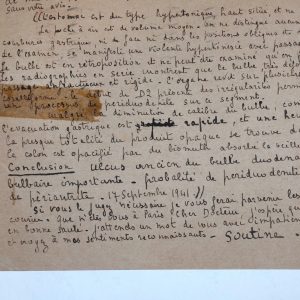 Sans votre avis :
L'estomac est du type hypertonique, haut situé et ne
La poche à air est de volume moyen. On ne distingue aucun
contour gastrique, ni de face ni dans les positions obliques et
de l'examen, il manifeste une violente hypertonie avec
Le bulbe est en rétroposition et ne peut être examiné qu'en
les radiographies en série montrent que le bulbe très déf
rétréci et rigide. L'organe revêt sur plusieurs
de D2 présente des irrégularités perm
processus de periduodenite sur ce segment.
malgré la diminution de calibre du bulbe,
l'évacuation gastrique est rapide, et une heure
la presque totalité du produit opaque se trouve d
le colon est opacifié par du bismuth absorbé la veille
Conclusion Ulcus ancien du bulbe duodenal
bulbaire importante - probalité de periduodenite
de periantrite - 17 Septembre 1941 //
Si vous le jugez nécéssaire je vous ferai parvenir les
courrier. Que n'êtes vous à Paris cher Docteur, j'espère que
en bonne santé. j'attends un mot de vous avec impatience
et croyez à mes sentiments reconnaissants - Soutine